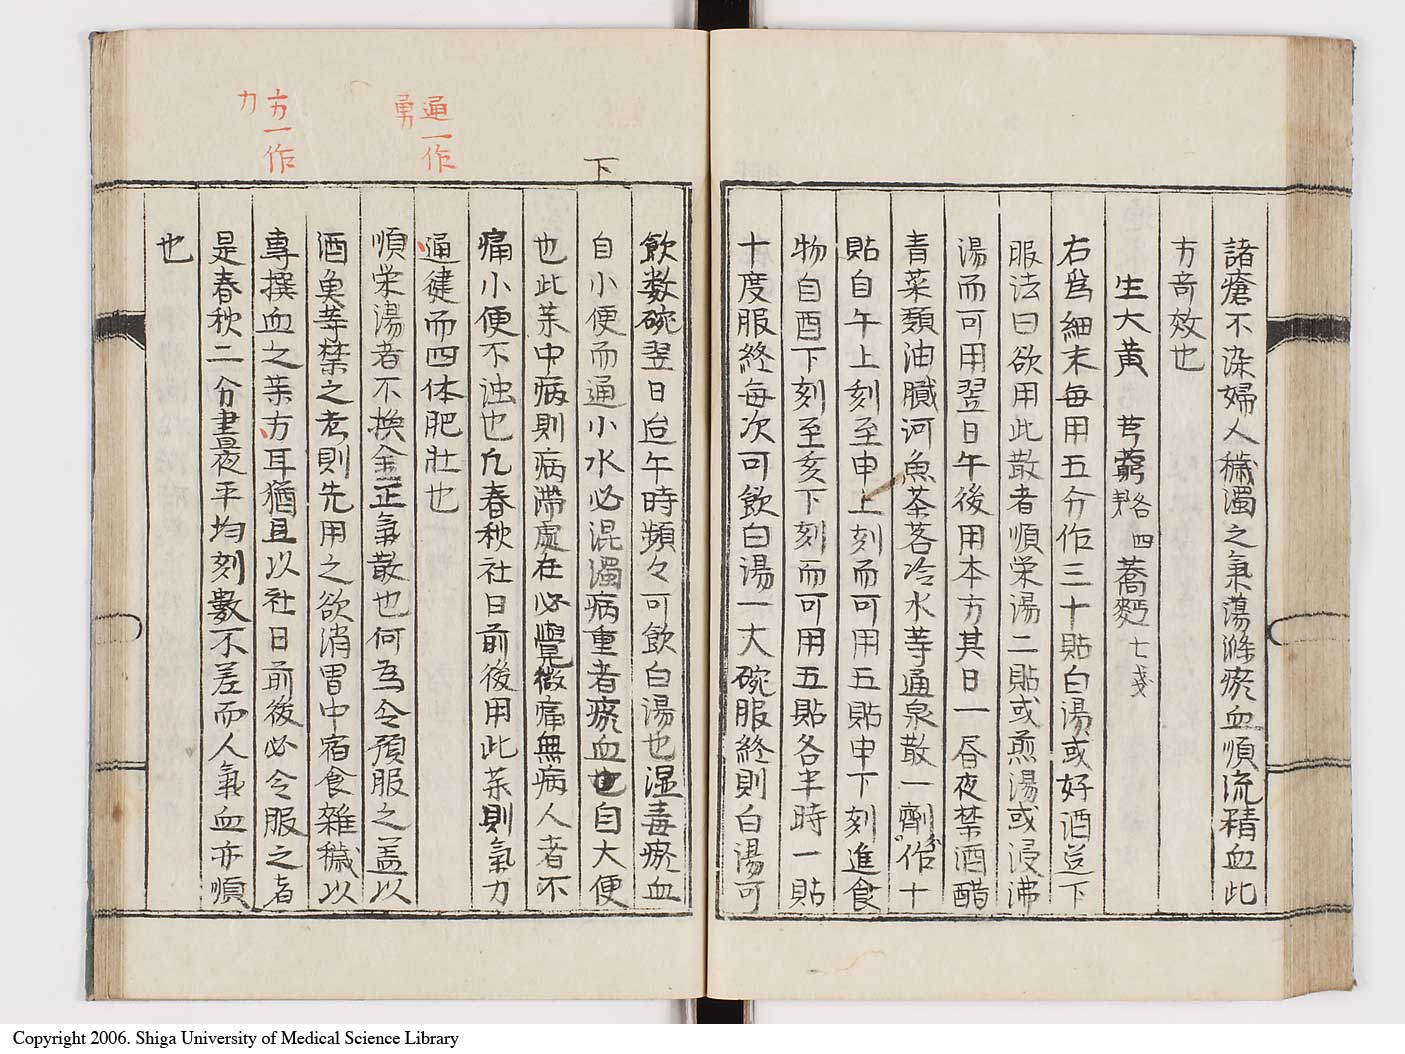 諸瘡不染婦人穢濁之氣蕩滌瘀血順流精血此
方竒效也
生大黄 芎藭 略 四 蕎麪 七戔
右為細末毎用五分作三十貼白湯或好酒送下
服法曰欲用此散者順栄湯二貼或煎湯或浸沸
湯而可用翌日午後用本方其日一昼夜禁酒醋
青菜類油膩河魚茶茗冷水等通泉散一劑作十
貼自午上刻至申上刻而可用五貼申下刻進食
物自酉下刻至亥下刻而可用五貼各半時一貼
十度服終毎次可飲白湯一大碗服終則白湯可
下
飲数碗翌日迨午時頻々可飲白湯也湿毒瘀血
自小便而通小水必混濁病重者瘀血也自大便
也此薬中病則病滞處在必覺微痛無病人者不
痛小便不浊也凢春秋社日前後用此薬則氣力
通健而四体肥壮也
通一作
勇
順栄湯者不換金正氣散也何為令預服之盖以
酒魚等禁之者則先用之欲消胃中宿食雜穢以
專撰血之薬方耳猶且以社日前後必令服之者
方一作
力
是春秋二分晝夜平均刻數不差而人氣血亦順
也
Copyright 2006. Shiga University of Medical Science Library